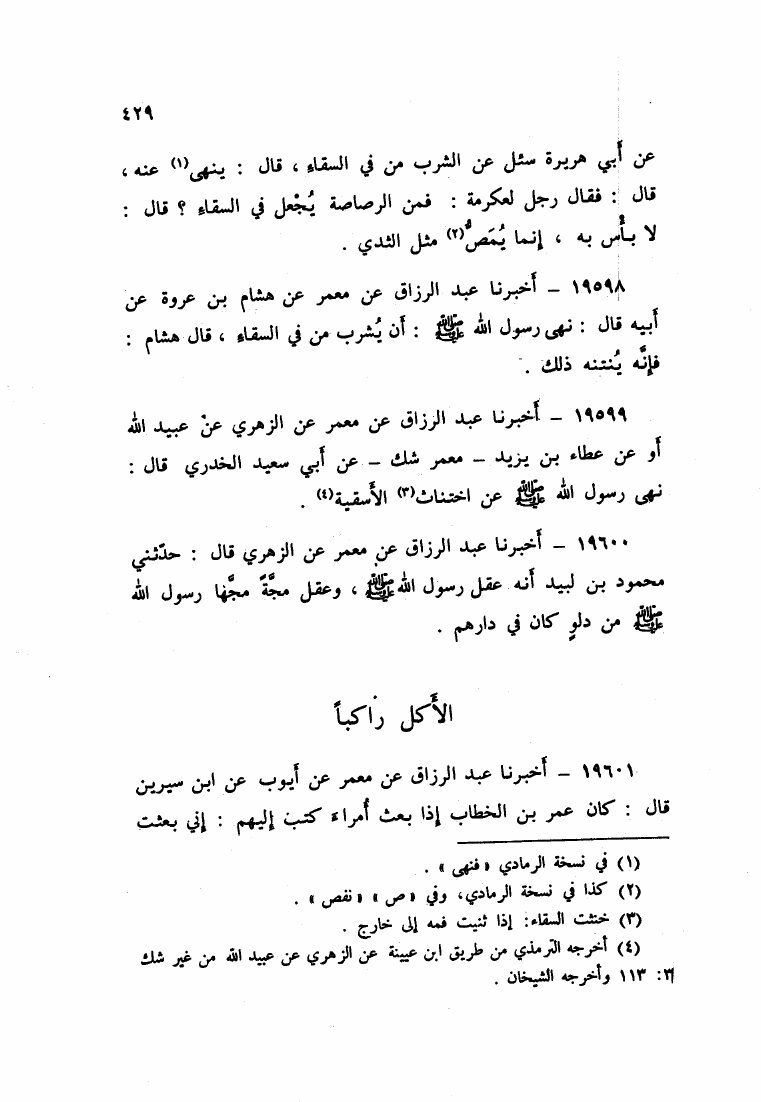 ٤٢٩
عن أَبي هريرة سئل عن الشرب من في السقاء ، قال : ينهى(١) عنه ،
قال : فقال رجل لعكرمة : فمن الرصاصة يُجْعل في السقاء ؟ قال :
لا بأْس به ، إنما يُمَصُّ(٢) مثل الثدي .
١٩٥٩٨ – أَخبرنا عبد الرزاق عن معمر عن هشام بن عروة عن
أَبيه قال : نهى رسول الله ﷺ : أَن يُشرب من في السقاء ، قال هشام :
فإنَّه يُنتنه ذلك .
١٩٥٩٩ – أَخبرنا عبد الرزاق عن معمر عن الزهري عنْ عبيد الله
أَو عن عطاء بن يزيد – معمر شك – عن أَبي سعيد الخدري قال :
نهى رسول الله ﷺ عن اختناث(٣) الأَسقية(٤) .
١٩٦٠٠ – أَخبرنا عبد الرزاق عن معمر عن الزهري قال : حدّثني
محمود بن لبيد أَنه عقل رسول الله ﷺ ، وعقل مجَّةً مجَّها رسول الله
ﷺ من دلوٍ كان في دارهم .
الأَكل راكباً
١٩٦٠١ – أَخبرنا عبد الرزاق عن معمر عن أَيوب عن ابن سيرين
قال : كان عمر بن الخطاب إذا بعث أُمراءَ كتب إليهم : إني بعثت
(١) في نسخة الرمادي «فنهى» .
(٢) كذا في نسخة الرمادي، وفي «ص» «نفص» .
(٣) خنثت السقاء: إذا ثنيت فمه إلى خارج .
(٤) أخرجه الترمذي من طريق ابن عيينة عن الزهري عن عبيد الله من غير شك
٣: ١١٣ وأخرجه الشيخان .